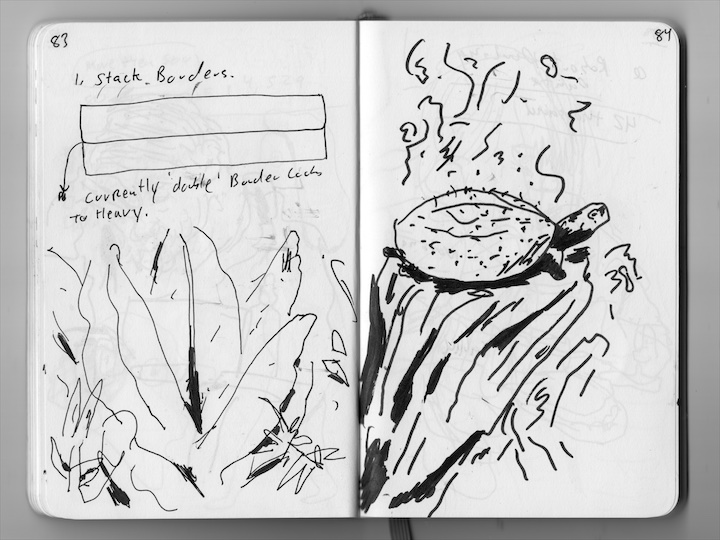 83
1, Stack Borders.
Currently 'double' Border Looks
To Heavy.
84